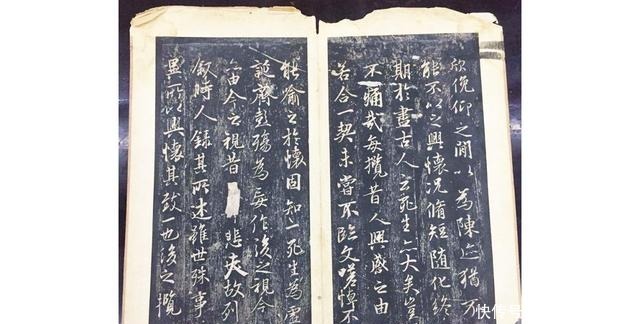 欣俛仰之間以為陳迹猶不
能不以之興懷況脩短隨化終
期於盡古人云死生亦大矣豈
不痛哉每攬昔人興感之由
若合一契未嘗不臨文嗟悼不
能喻之於懷固知一死生為虛
誕齊彭殤為妄作後之視今
由今之視昔 悲夫故列
叙時人錄其所述雖世殊事
異所以興懷其致一也後之攬
快传号